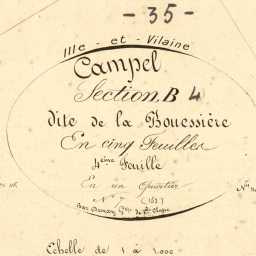 - 35 -
Ille - et - Vilaine
Campel
Section. B 4
dite de la Bouëssière
En cinq Feuilles
4ème Feuille
En un Quartier
N° 7 (163)
Echelle de 1 à 1000